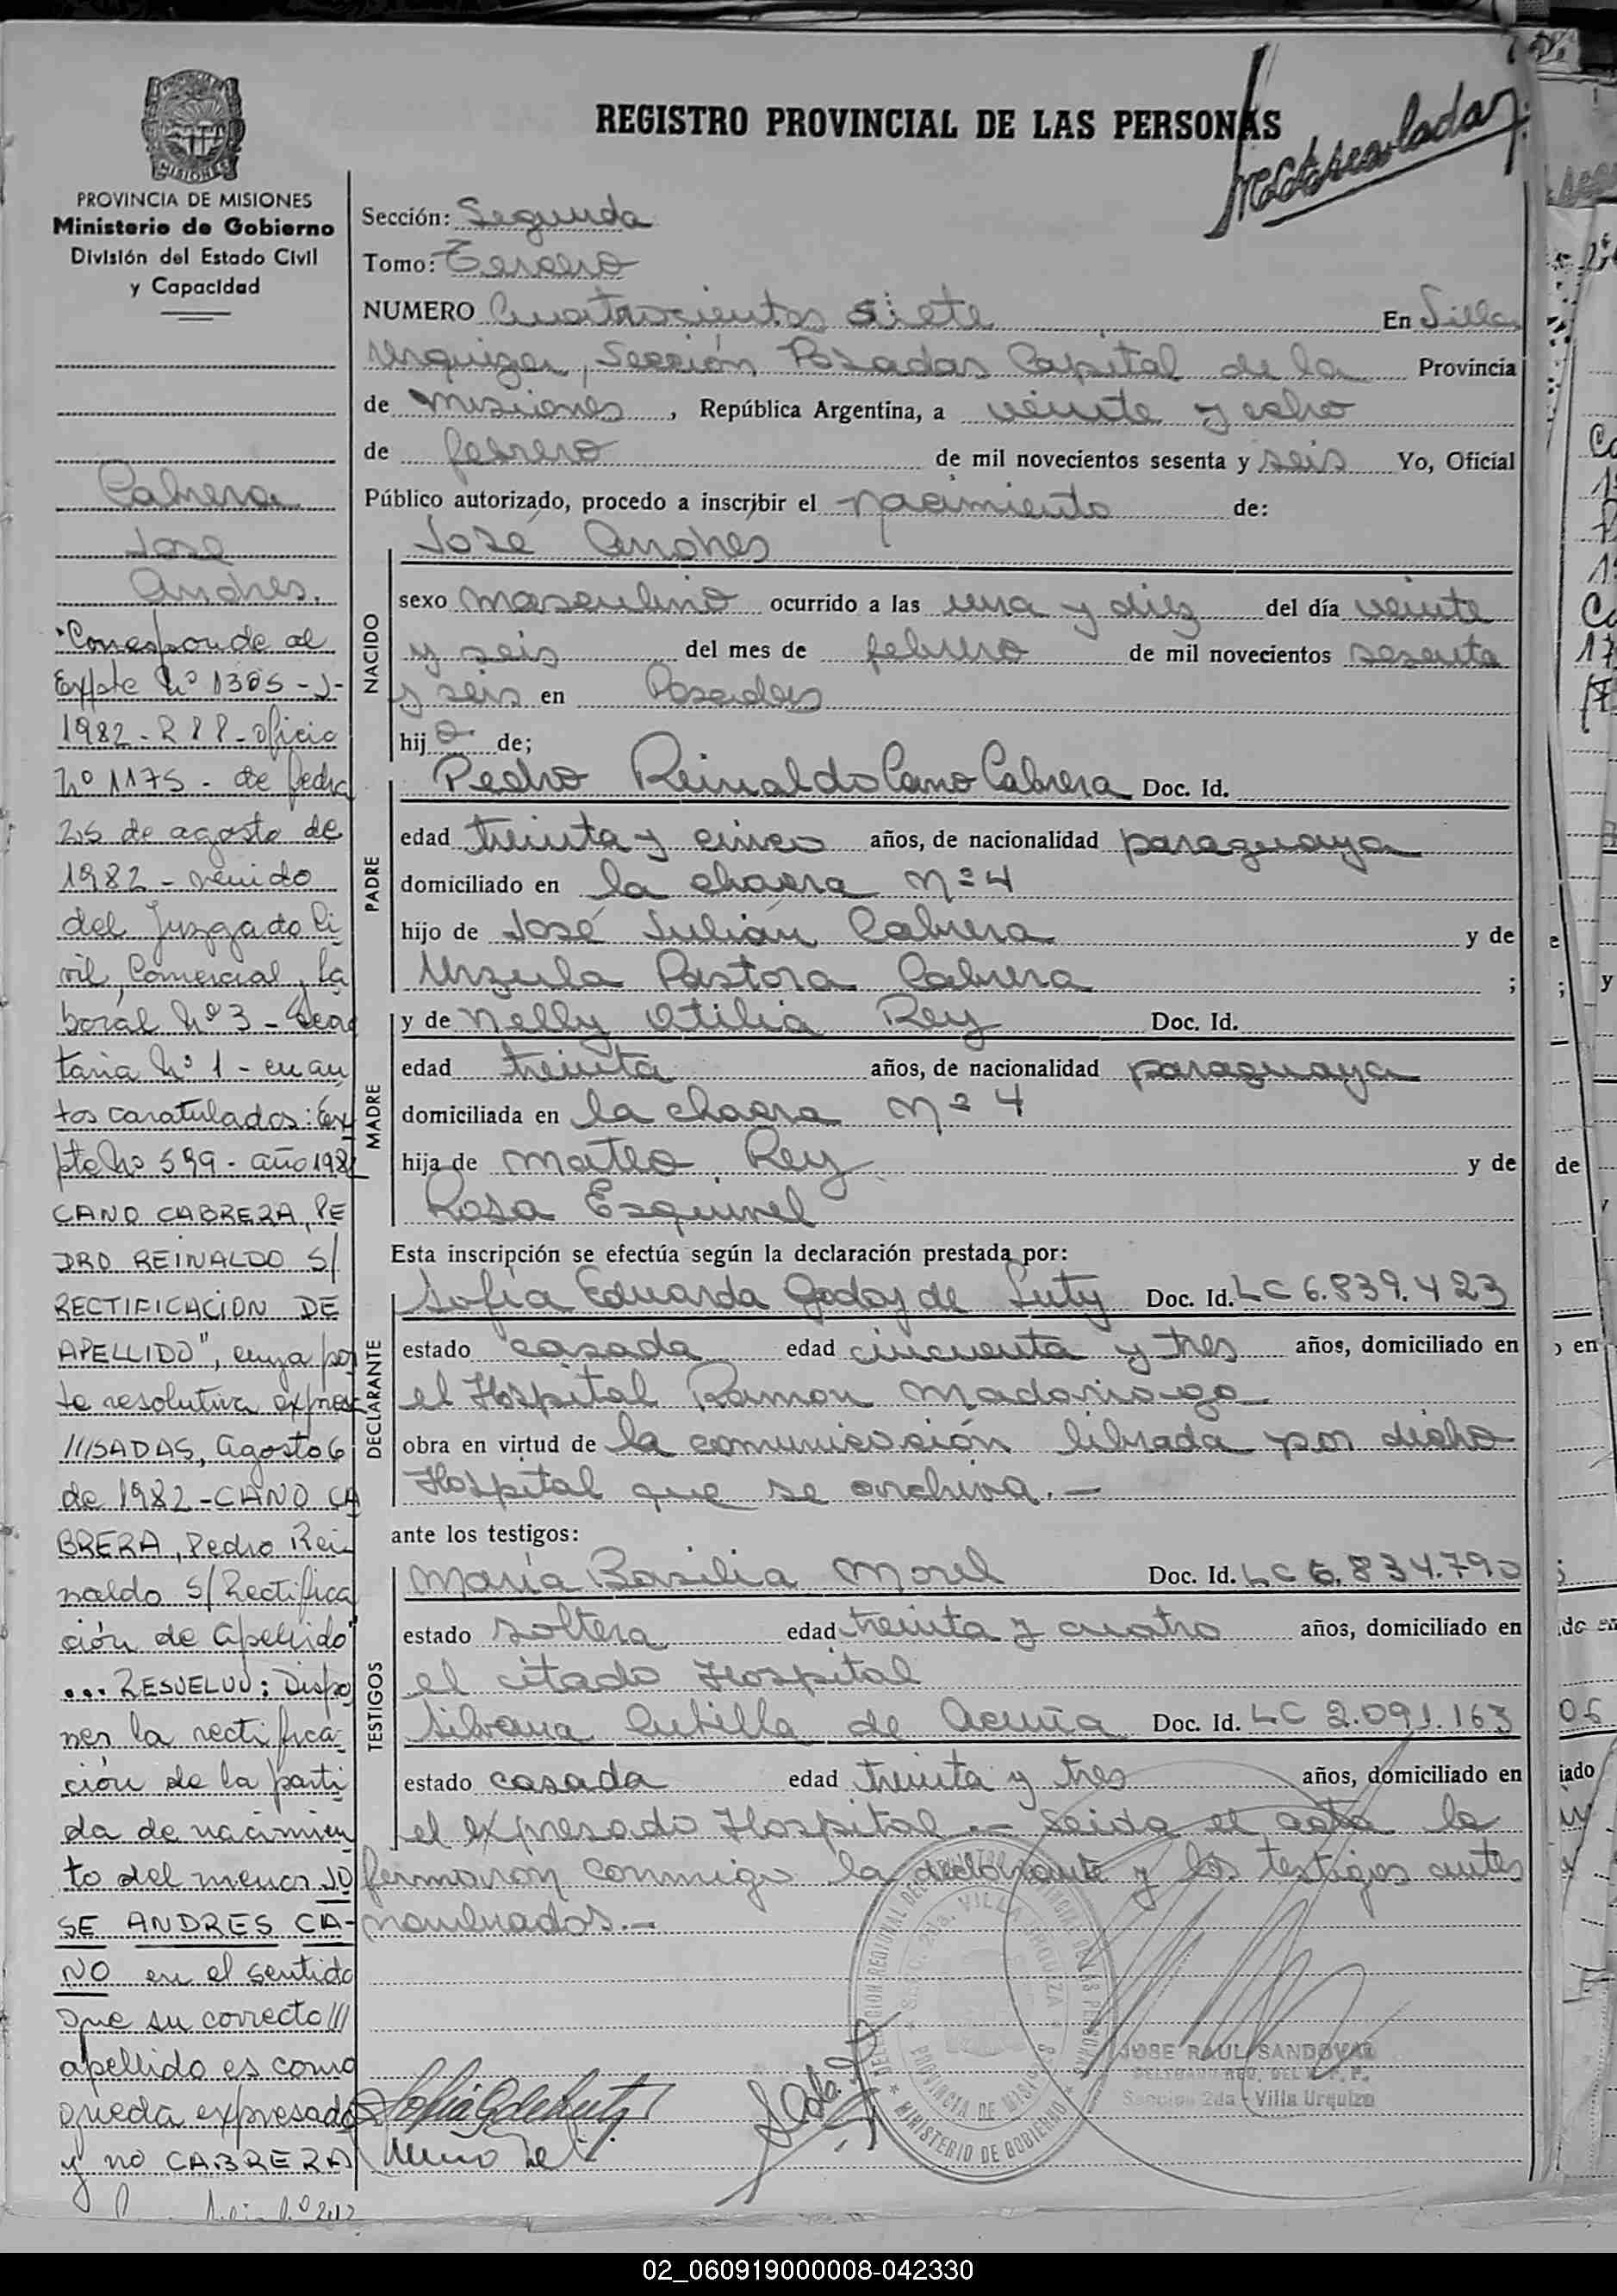 REGISTRO PROVINCIAL DE LAS PERSONAS
PROVINCIA DE MISIONES
Ministerio de Gobierno
División del Estado Civil
y Capacidad
Cabrera
José
Andrés.
"Corresponde al
Expte Nº 1385-J-
1982-R P P-Oficio
Nº 1175 - de fecha
25 de agosto de
1982 - venido
del Juzgado Ci
vil, Comercial, La
boral Nº 3 - Secre
taria Nº 1 - en au
tos caratulados: Ex
pte Nº 599 - año 1982
CANO CABRERA, PE
DRO REINALDO S/
RECTIFICACION DE
APELLIDO", cuya par
te resolutiva expresa
///SADAS, Agosto 6
de 1982 - CANO CA
BRERA, Pedro Rei
naldo S/ Rectifica
ción de Apellido"
... RESUELVO: Dispo
ner la rectifica-
ción de la parti
da de nacimien
to del menor JO
SE ANDRES CA-
NO en el sentido
que su correcto ///
apellido es como
queda expresado
y no CABRERA
Sección: Segunda
Tomo: Tercero
NUMERO Cuatrocientos siete En Villa
Urquiza, Sección Posadas Capital de la Provincia
de Misiones, República Argentina, a veinte y ocho
de febrero de mil novecientos sesenta y seis Yo, Oficial
Público autorizado, procedo a inscribir el nacimiento de:
José Andrés
NACIDO
sexo masculino ocurrido a las una y diez del día veinte
y seis del mes de febrero de mil novecientos sesenta
y seis en Posadas
hijo de;
PADRE
Pedro Reinaldo Cano Cabrera Doc. Id.
edad treinta y cinco años, de nacionalidad paraguaya
domiciliado en la chacra Nº 4
hijo de José Julián Cabrera y de
Urzula Pastora Cabrera ;
MADRE
y de Nelly Otilia Rey Doc. Id.
edad treinta años, de nacionalidad paraguaya
domiciliada en la chacra Nº 4
hija de Mateo Rey y de
Rosa Esquivel
Esta inscripción se efectúa según la declaración prestada por:
DECLARANTE
Sofía Eduarda Godoy de Luty Doc. Id. LC 6.839.423
estado casada edad cincuenta y tres años, domiciliado en
el Hospital Ramon Madariaga
obra en virtud de la comunicación librada por dicho
Hospital que se archiva.-
ante los testigos:
TESTIGOS
María Basilia Morel Doc. Id. LC 6.834.790
estado soltera edad treinta y cuatro años, domiciliado en
el citado Hospital
Silvana Cubilla de Acuña Doc. Id. LC 2.091.163
estado casada edad treinta y tres años, domiciliado en
el expresado Hospital.- Leida el acta la
firmaron conmigo la declarante y los testigos antes
nombrados.-
JOSE RAUL SANDOVAL
Seccion 2da - Villa Urquiza
MINISTERIO DE GOBIERNO
PROVINCIA DE MISIONES
02_060919000008-042330